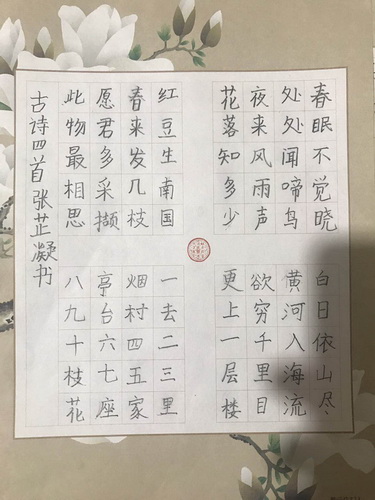 春眠不觉晓
处处闻啼鸟
夜来风雨声
花落知多少
红豆生南国
春来发几枝
愿君多采撷
此物最相思
白日依山尽
黄河入海流
欲穷千里目
更上一层楼
一去二三里
烟村四五家
亭台六七座
八九十枝花
古诗四首张芷凝书